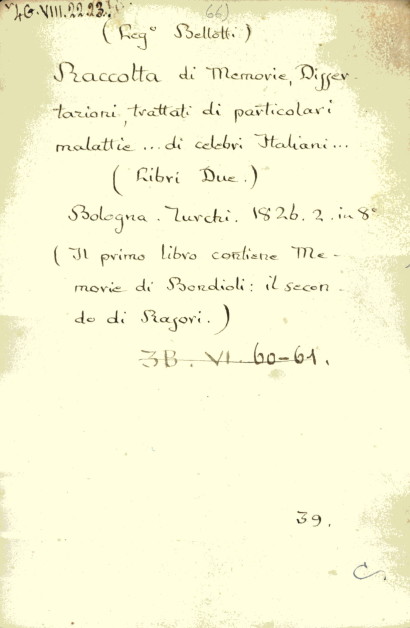 4G.VIII.22.23. (66)
(Leg° Bellotti)
Raccolta di Memorie, Disser-
tazioni, trattati di particolari
malattie ... di celebri Italiani ...
(Libri Due.)
Bologna. Turchi. 1826. 2. in 8°
(Il primo libro contiene Me-
morie di Bondioli: il secon-
do di Rasori.)
3B. VI. 60-61.
39.